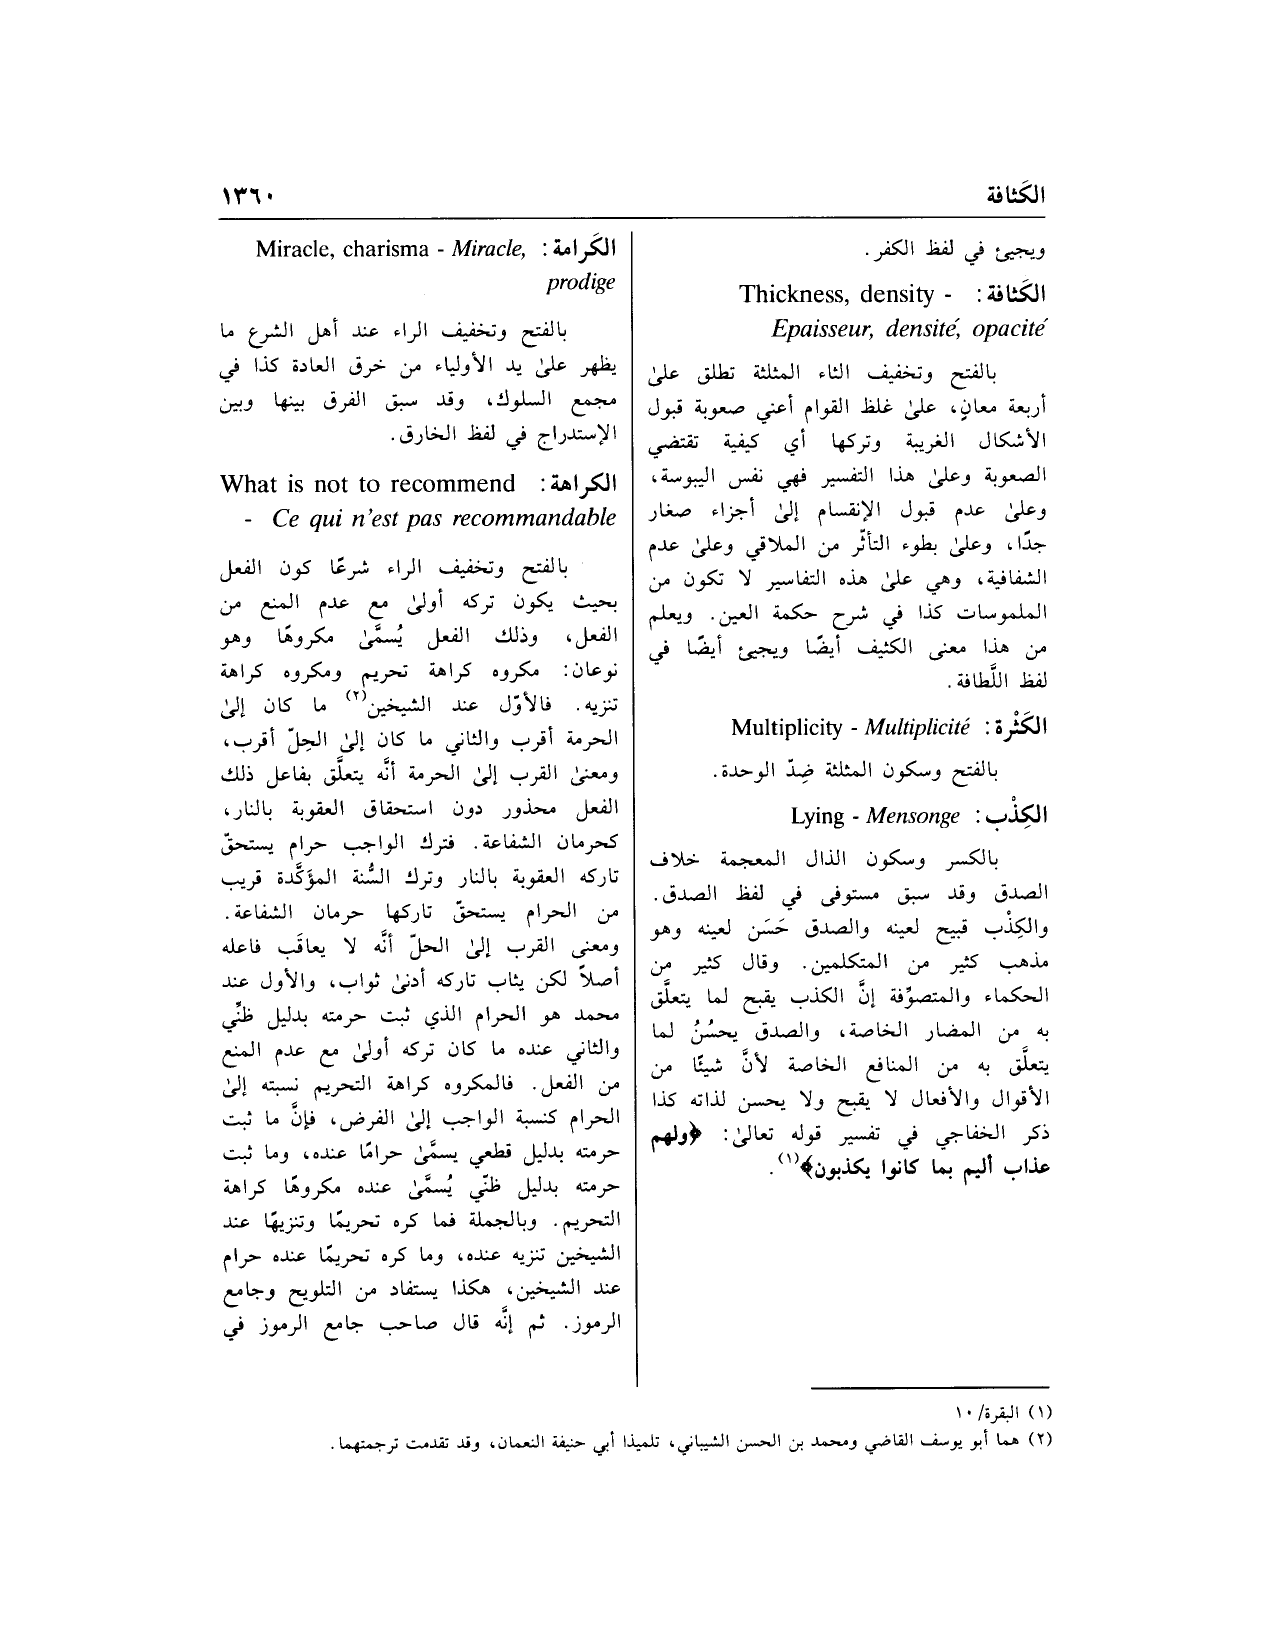 الكَثافة
١٣٦٠
ويجيئ في لفظ الكفر.
الكَثافة: Thickness, density -
Epaisseur, densité, opacité
بالفتح وتخفيف الثاء المثلثة تطلق علىٰ
أربعة معانٍ، علىٰ غلظ القوام أعني صعوبة قبول
الأشكال الغريبة وتركها أي كيفية تقتضي
الصعوبة وعلىٰ هذا التفسير فهي نفس اليبوسة،
وعلىٰ عدم قبول الإنقسام إلىٰ أجزاء صغار
جدًا، وعلىٰ بطوء التأثّر من الملاقي وعلىٰ عدم
الشفافية، وهي علىٰ هذه التفاسير لا تكون من
الملموسات كذا في شرح حكمة العين. ويعلم
من هذا معنى الكثيف أيضًا ويجيئ أيضًا في
لفظ اللَّطافة.
الكَثْرة: Multiplicity - Multiplicité
بالفتح وسكون المثلثة ضِدّ الوحدة.
الكِذْب: Lying - Mensonge
بالكسر وسكون الذال المعجمة خلاف
الصدق وقد سبق مستوفى في لفظ الصدق.
والكِذْب قبيح لعينه والصدق حَسَن لعينه وهو
مذهب كثير من المتكلمين. وقال كثير من
الحكماء والمتصوِّفة إنَّ الكذب يقبح لما يتعلَّق
به من المضار الخاصة، والصدق يحسُنُ لما
يتعلَّق به من المنافع الخاصة لأنَّ شيئًا من
الأقوال والأفعال لا يقبح ولا يحسن لذاته كذا
ذكر الخفاجي في تفسير قوله تعالىٰ: ﴿ولهم
عذاب أليم بما كانوا يكذبون﴾(١).
الكَرامة: Miracle, charisma - Miracle,
prodige
بالفتح وتخفيف الراء عند أهل الشرع ما
يظهر علىٰ يد الأولياء من خرق العادة كذا في
مجمع السلوك، وقد سبق الفرق بينها وبين
الإستدراج في لفظ الخارق.
الكراهة: What is not to recommend
- Ce qui n'est pas recommandable
بالفتح وتخفيف الراء شرعًا كون الفعل
بحيث يكون تركه أولىٰ مع عدم المنع من
الفعل، وذلك الفعل يُسمَّىٰ مكروهًا وهو
نوعان: مكروه كراهة تحريم ومكروه كراهة
تنزيه. فالأوّل عند الشيخين(٢) ما كان إلىٰ
الحرمة أقرب والثاني ما كان إلىٰ الحِلّ أقرب،
ومعنىٰ القرب إلىٰ الحرمة أنَّه يتعلَّق بفاعل ذلك
الفعل محذور دون استحقاق العقوبة بالنار،
كحرمان الشفاعة. فترك الواجب حرام يستحقّ
تاركه العقوبة بالنار وترك السُّنة المؤكَّدة قريب
من الحرام يستحقّ تاركها حرمان الشفاعة.
ومعنى القرب إلىٰ الحلّ أنَّه لا يعاقَب فاعله
أصلاً لكن يثاب تاركه أدنىٰ ثواب، والأول عند
محمد هو الحرام الذي ثبت حرمته بدليل ظنِّي
والثاني عنده ما كان تركه أولىٰ مع عدم المنع
من الفعل. فالمكروه كراهة التحريم نسبته إلىٰ
الحرام كنسبة الواجب إلىٰ الفرض، فإنَّ ما ثبت
حرمته بدليل قطعي يسمَّىٰ حرامًا عنده، وما ثبت
حرمته بدليل ظنّي يُسمَّىٰ عنده مكروهًا كراهة
التحريم. وبالجملة فما كره تحريمًا وتنزيهًا عند
الشيخين تنزيه عنده، وما كره تحريمًا عنده حرام
عند الشيخين، هكذا يستفاد من التلويح وجامع
الرموز. ثم إنَّه قال صاحب جامع الرموز في
(١) البقرة/١٠
(٢) هما أبو يوسف القاضي ومحمد بن الحسن الشيباني، تلميذا أبي حنيفة النعمان، وقد تقدمت ترجمتهما.